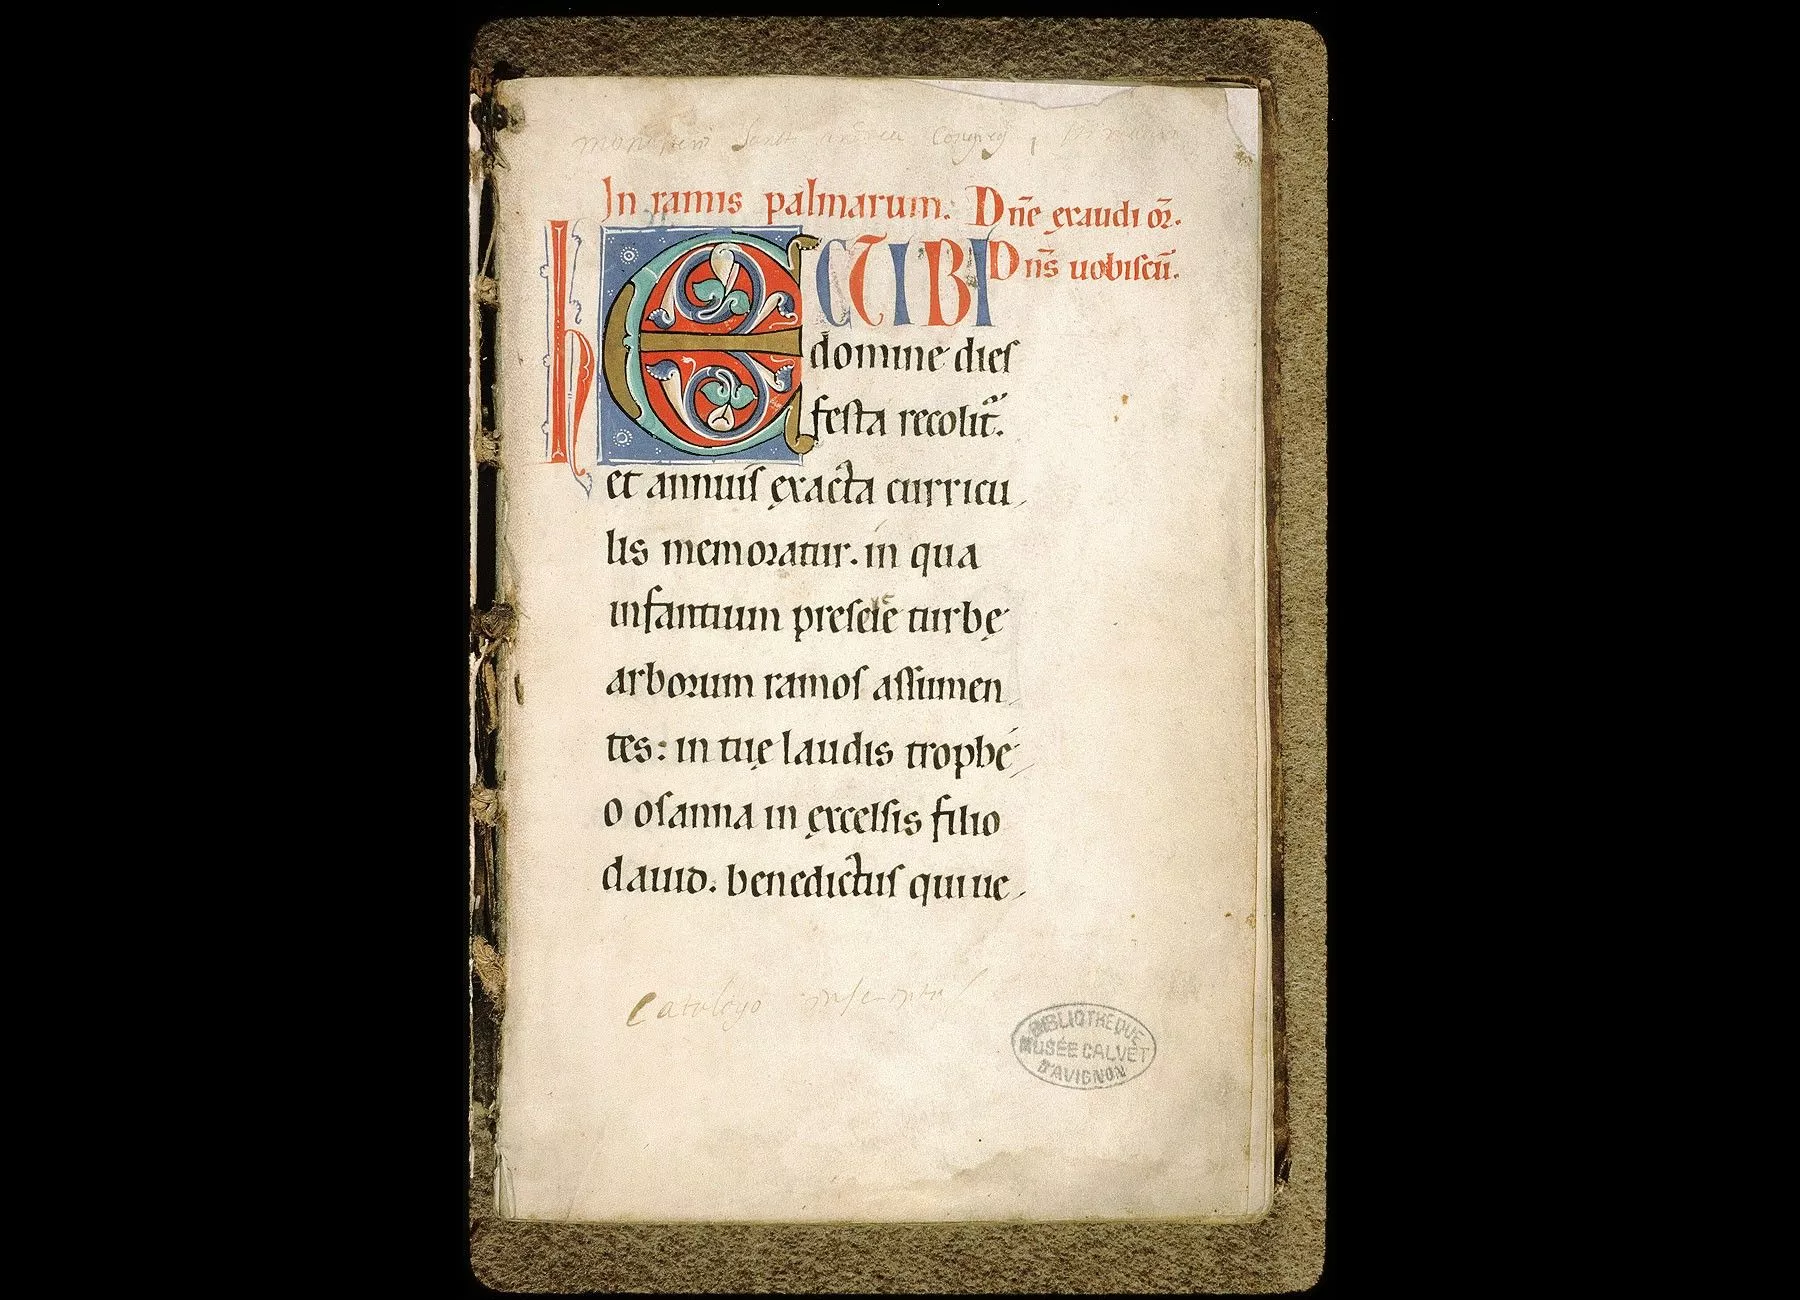 Sancti Andreæ Congreg
In ramis palmarum. Dn̄e exaudi or̄.
hECCE TIBI Dn̄s uobiscū.
domine dies
festa recolit᷑.
et annuis exacta curricu
lis memoratur. in qua
infantium preseīe turbę
arborum ramos assumen
tes: in tuę laudis trophe
o osanna in excelsis filio
dauid. benedictus qui ue
Catalogo inscriptus
BIBLIOTHEQUE
MUSÉE CALVET
D'AVIGNON